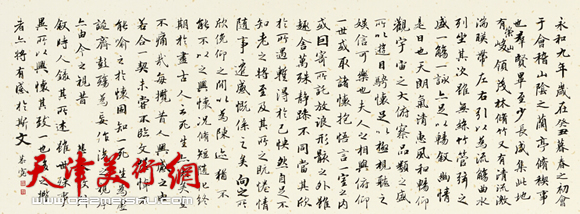 永和九年歲在癸丑暮春之初會
于會稽山陰之蘭亭脩稧事
也群賢畢至少長咸集此地
有崇山峻領茂林脩竹又有清流激
湍暎帶左右引以為流觴曲水
列坐其次雖無絲竹管弦之
盛一觴一詠亦足以暢敘幽情
是日也天朗氣清惠風和暢仰
觀宇宙之大俯察品類之盛
所以遊目騁懷足以極視聽之
娛信可樂也夫人之相與俯仰
一世或取諸懷抱悟言一室之內
或因寄所託放浪形骸之外雖
趣舍萬殊靜躁不同當其欣
於所遇暫得於己快然自足不
知老之將至及其所之既惓情
隨事遷感慨係之矣向之所
欣俛仰之間以為陳迹猶不
能不以之興懷況脩短隨化終
期於盡古人云死生亦大矣豈
不痛哉每攬昔人興感之由
若合一契未嘗不臨文嗟悼不
能喻之於懷固知一死生為虛
誕齊彭殤為妄作後之視今
亦由今之視昔
敘時人錄其所述雖世殊事
異所以興懷其致一也後之攬
者亦將有感於斯文
天津美術網